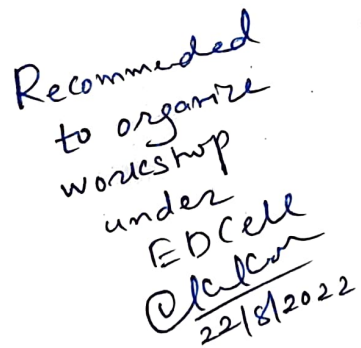 Recommended
to organize
workshop
under
EDCell
22/8/2022